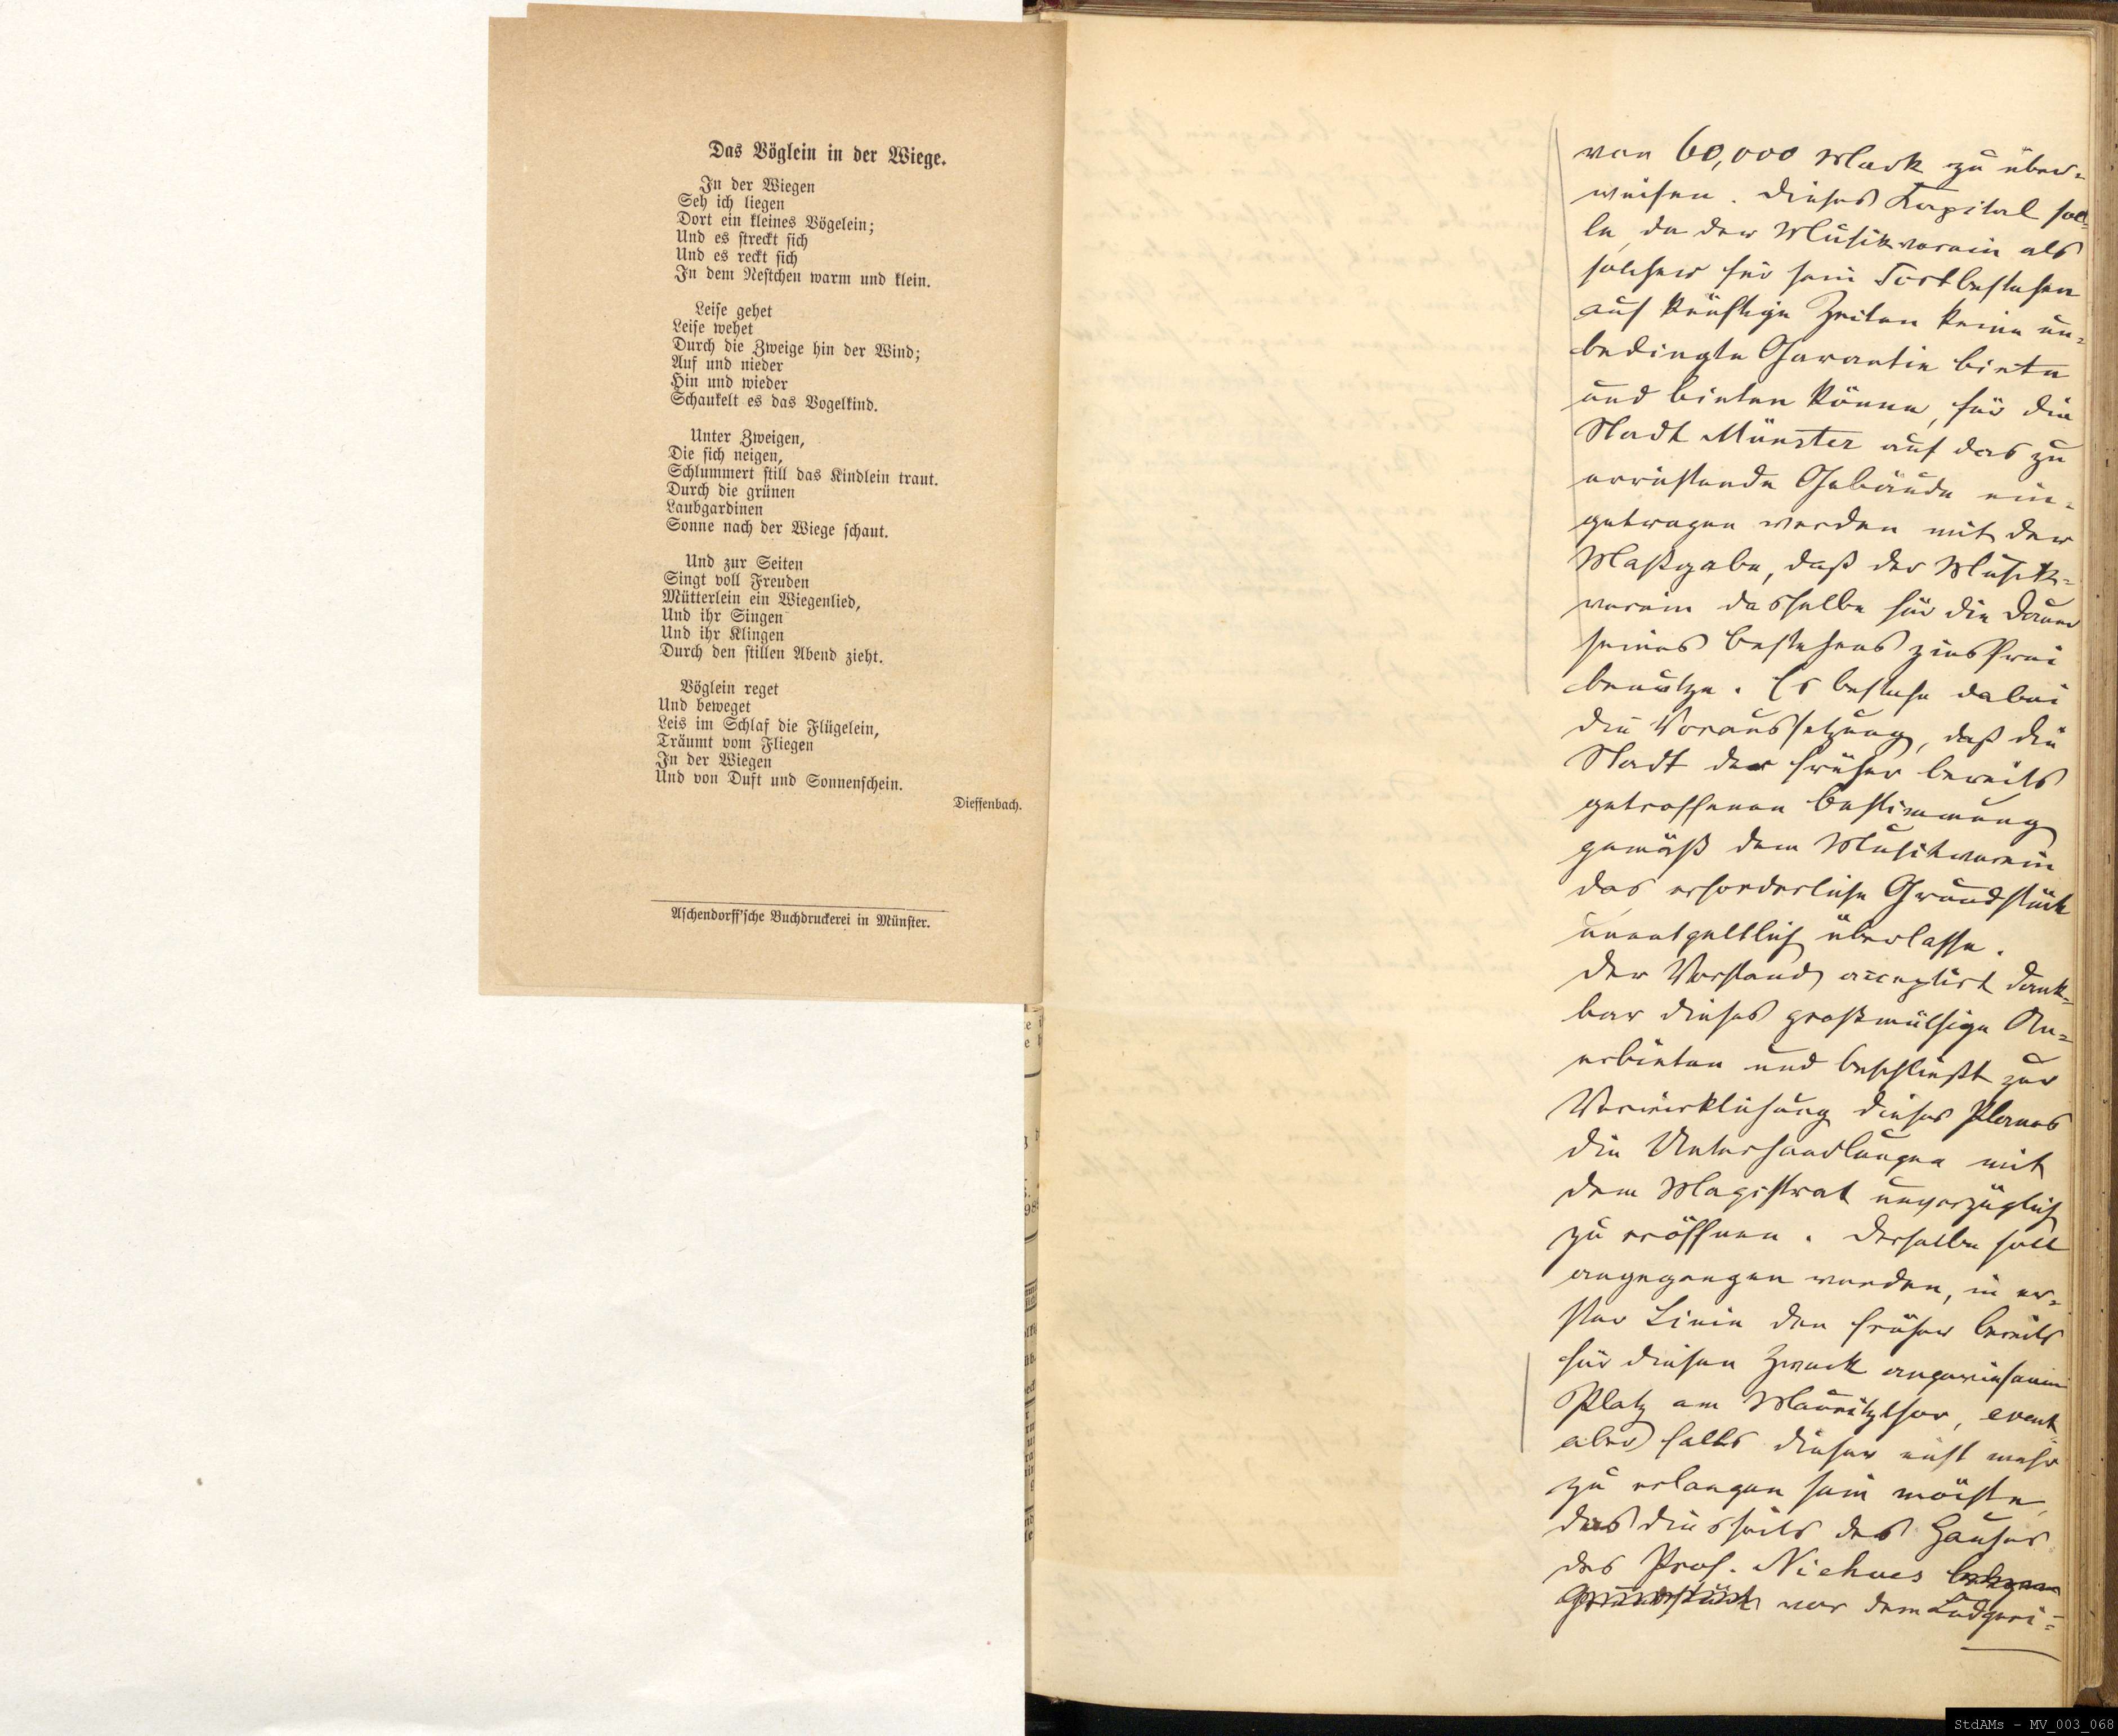 Das Vöglein in der Wiege.
In der Wiegen
Seh ich liegen
Dort ein kleines Vögelein;
Und es streckt sich
Und es reckt sich
In dem Nestchen warm und klein.
Leise gehet
Leise wehet
Durch die Zweige hin der Wind;
Auf und nieder
Hin und wieder
Schaukelt es das Vogelkind.
Unter Zweigen,
Die sich neigen,
Schlummert still das Kindlein traut.
Durch die grünen
Laubgardinen
Sonne nach der Wiege schaut.
Und zur Seiten
Singt voll Freuden
Mütterlein ein Wiegenlied,
Und ihr Singen
Und ihr Klingen
Durch den stillen Abend zieht.
Vöglein reget
Und beweget
Leis im Schlaf die Flügelein,
Träumt vom Fliegen
In der Wiegen
Und von Duft und Sonnenschein.
Dieffenbach.
Aschendorff'sche Buchdruckerei in Münster.
von 60,000 Mark zu über-
weisen. Dieses Kapital sol-
le, da der Musikverein als
solcher für sein Fortbestehen
auf künftige Zeiten keine un-
bedingte Garantie biete
und bieten könne, für die
Stadt Münster auf das zu
errichtende Gebäude ein-
getragen werden mit der
Maßgabe, daß der Musik-
verein dasselbe für die Dauer
seines Bestehens zinsfrei
benutze. Es bestehe dabei
die Voraussetzung, daß die
Stadt der früher bereits
getroffenen Bestimmung
gemäß dem Musikverein
das erforderliche Grundstück
unentgeltlich überlasse.
Der Vorstand acceptirt dank-
bar dieses großmüthige An-
erbieten und beschließt zur
Verwirklichung dieses Planes
die Unterhandlungen mit
dem Magistrat unverzüglich
zu eröffnen. Derselbe soll
angegangen werden, in er-
ster Linie den früher bereits
für diesen Zweck angewiesenen
Platz am Mauritzthor, event.
aber falls dieser nicht mehr
zu erlangen sein möchte,
das diesseits des Hauses
des Prof. Niehues
Grundstück vor dem Ludgeri-
StdAMs - MV_003_068